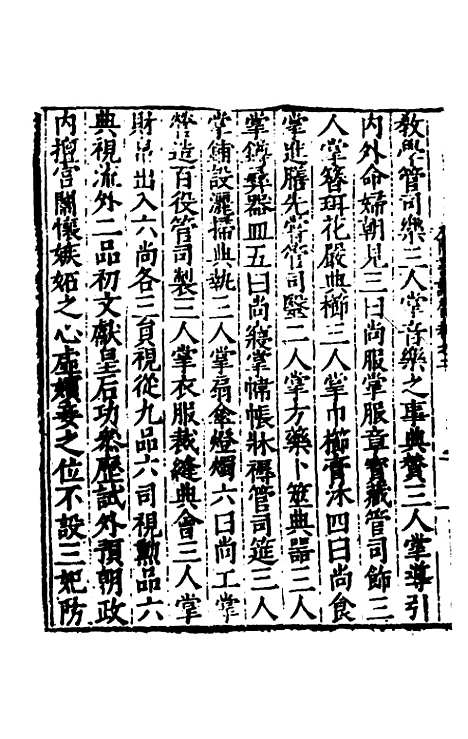 教學管司樂三人掌音樂之事典贊三人掌導引
内外命婦朝見三曰尚服掌服章寶藏管司飾三
人掌簪珥花嚴典櫛三人掌巾櫛膏沐四曰尚食
掌進膳先嘗管司醫二人掌方藥卜筮典器三人
掌鐏彝器皿五曰尚寢掌幃帳牀褥管司筵三人
掌鋪設灑掃典執三人掌扇傘燈燭六曰尚工掌
營造百役管司製三人掌衣服裁縫典會三人掌
財帛出入六尚各三員視從九品六司視勲品六
典視流外二品初文獻皇后功叅歷試外預朝政
内擅宮闈懷嫉妬之心虛嬪妾之位不設三妃防